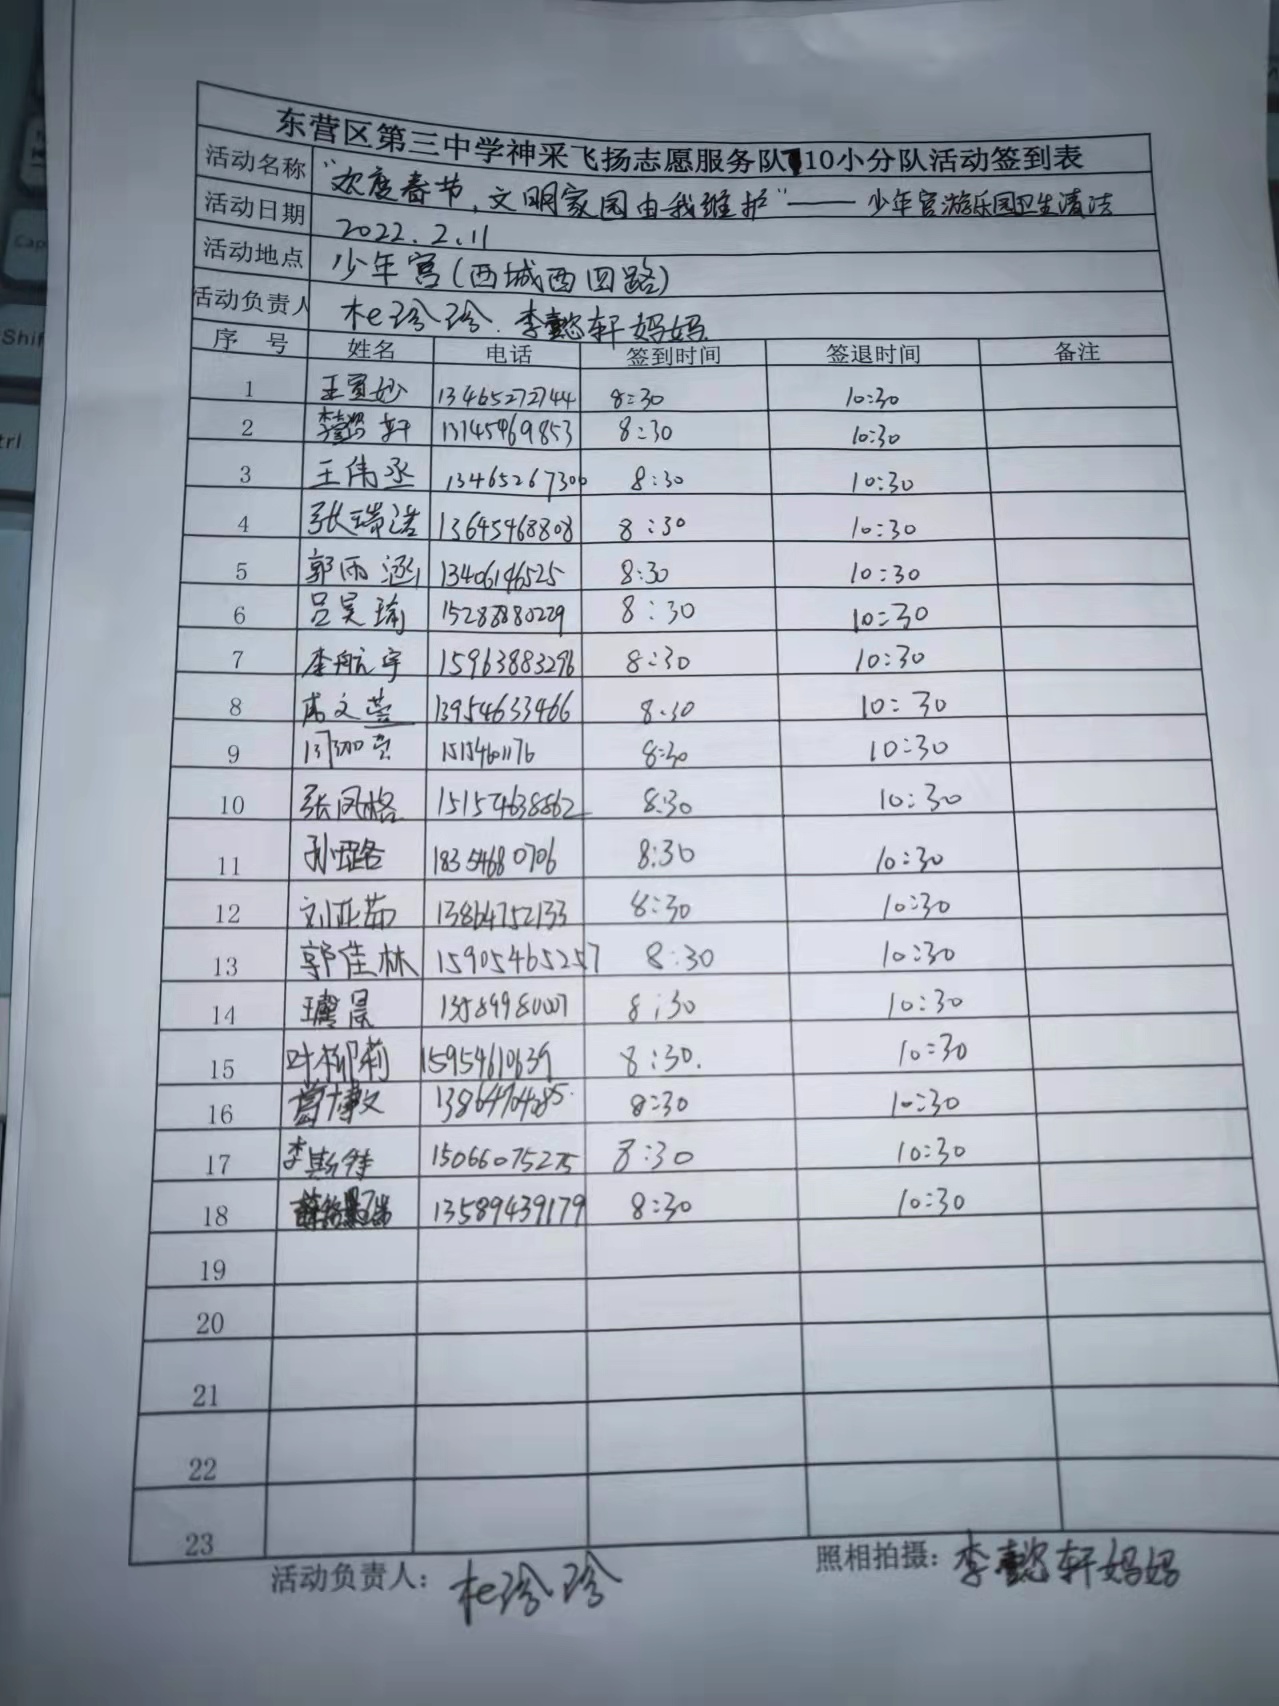 东营区第三中学神采飞扬志愿服务队10小分队活动签到表
活动名称 "欢度春节，文明家园由我维护"——少年宫游乐园卫生清洁
活动日期 2022.2.11
活动地点 少年宫(西城西四路)
活动负责人 杜珍珍.李懿轩妈妈
序号 姓名 电话 签到时间 签退时间 备注
1 王寅妙 13465272744 8:30 10:30
2 李懿轩 13145469853 8:30 10:30
3 王伟丞 13465267300 8:30 10:30
4 张瑞浩 13645468808 8:30 10:30
5 郭雨涵 13406196525 8:30 10:30
6 吕昊瑜 15288880229 8:30 10:30
7 李航宇 15963883296 8:30 10:30
8 文萱 13954633466 8:30 10:30
9 8:30 10:30
10 张凤格 151574638562 8:30 10:30
11 18354680706 8:30 10:30
12 刘亚茹 13864752133 8:30 10:30
13 郭佳林 15905465257 8:30 10:30
14 王馨晨 13589980007 8:30 10:30
15 叶柳莉 15954610639 8:30. 10:30
16 葛博文 8:30 10:30
17 李斯特 15066075275 8:30 10:30
18 13589439179 8:30 10:30
19
20
21
22
23
活动负责人：杜珍珍 照相拍摄：李懿轩妈妈